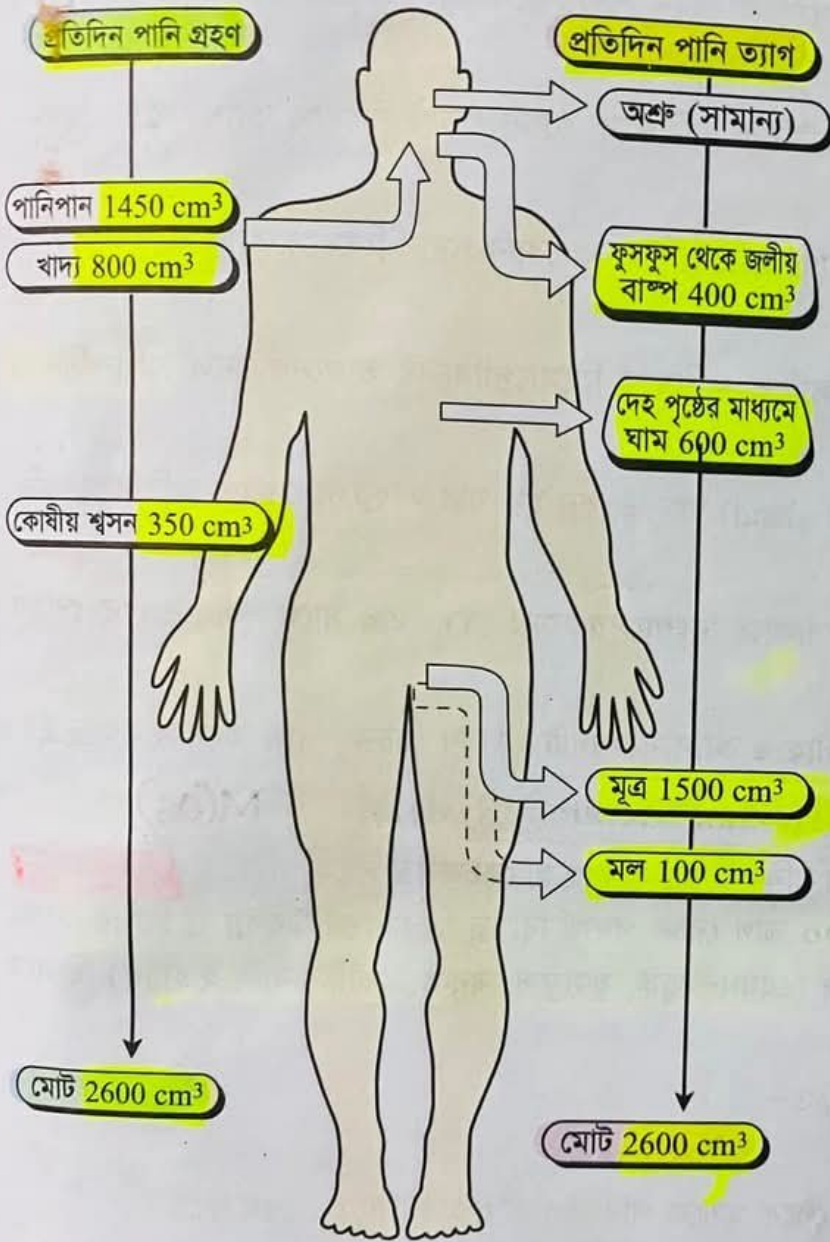 প্রতিদিন পানি গ্রহণ
পানিপান 1450 cm³
খাদ্য 800 cm³
কোষীয় শ্বসন 350 cm³
মোট 2600 cm³
প্রতিদিন পানি ত্যাগ
অশ্রু (সামান্য)
ফুসফুস থেকে জলীয়
বাষ্প 400 cm³
দেহ পৃষ্ঠের মাধ্যমে
ঘাম 600 cm³
মূত্র 1500 cm³
মল 100 cm³
মোট 2600 cm³